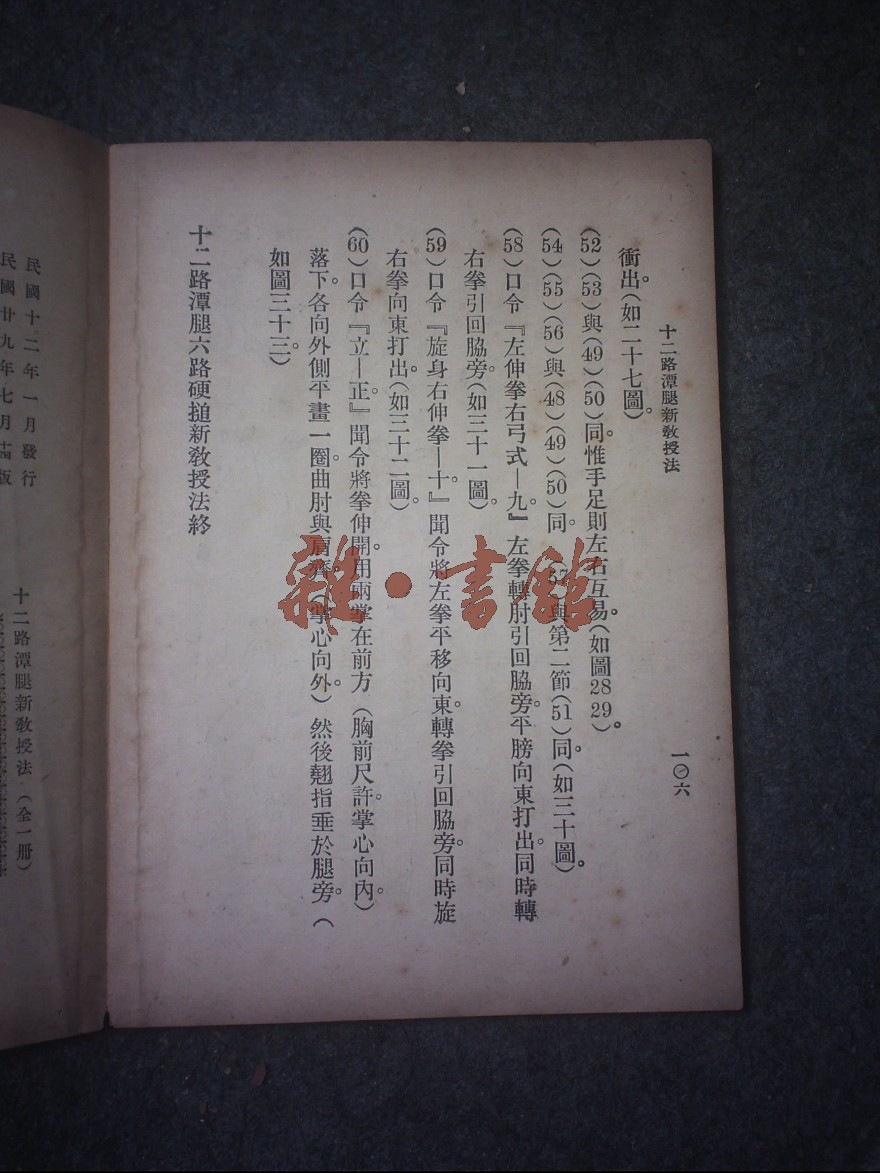 十二路潭腿新敎授法
一〇六
衝出。(如二十七圖。)
(52)(53)與(49)(50)同。惟手足則左右互易。(如圖28 29。)
(54)(55)(56)與(48)(49)(50)同。(57)與第二節(51)同。(如三十圖。)
(58)口令『左伸拳右弓式—九。』左拳轉肘引回脇旁。平膀向東打出。同時轉
右拳引回脇旁。(如三十一圖。)
(59)口令『旋身右伸拳—十。』聞令將左拳平移向東。轉拳引回脇旁。同時旋
右拳向東打出。(如三十二圖。)
(60)口令『立—正。』聞令將拳伸開。用兩掌在前方(胸前尺許。掌心向內。)
落下。各向外側平畫一圈。曲肘與肩齊。(掌心向外。)然後翹指垂於腿旁。(
如圖三十三。)
十二路潭腿六路硬搥新敎授法終
雜·書館
民國十二年一月發行
民國廿九年七月十四版
十二路潭腿新敎授法(全一册)